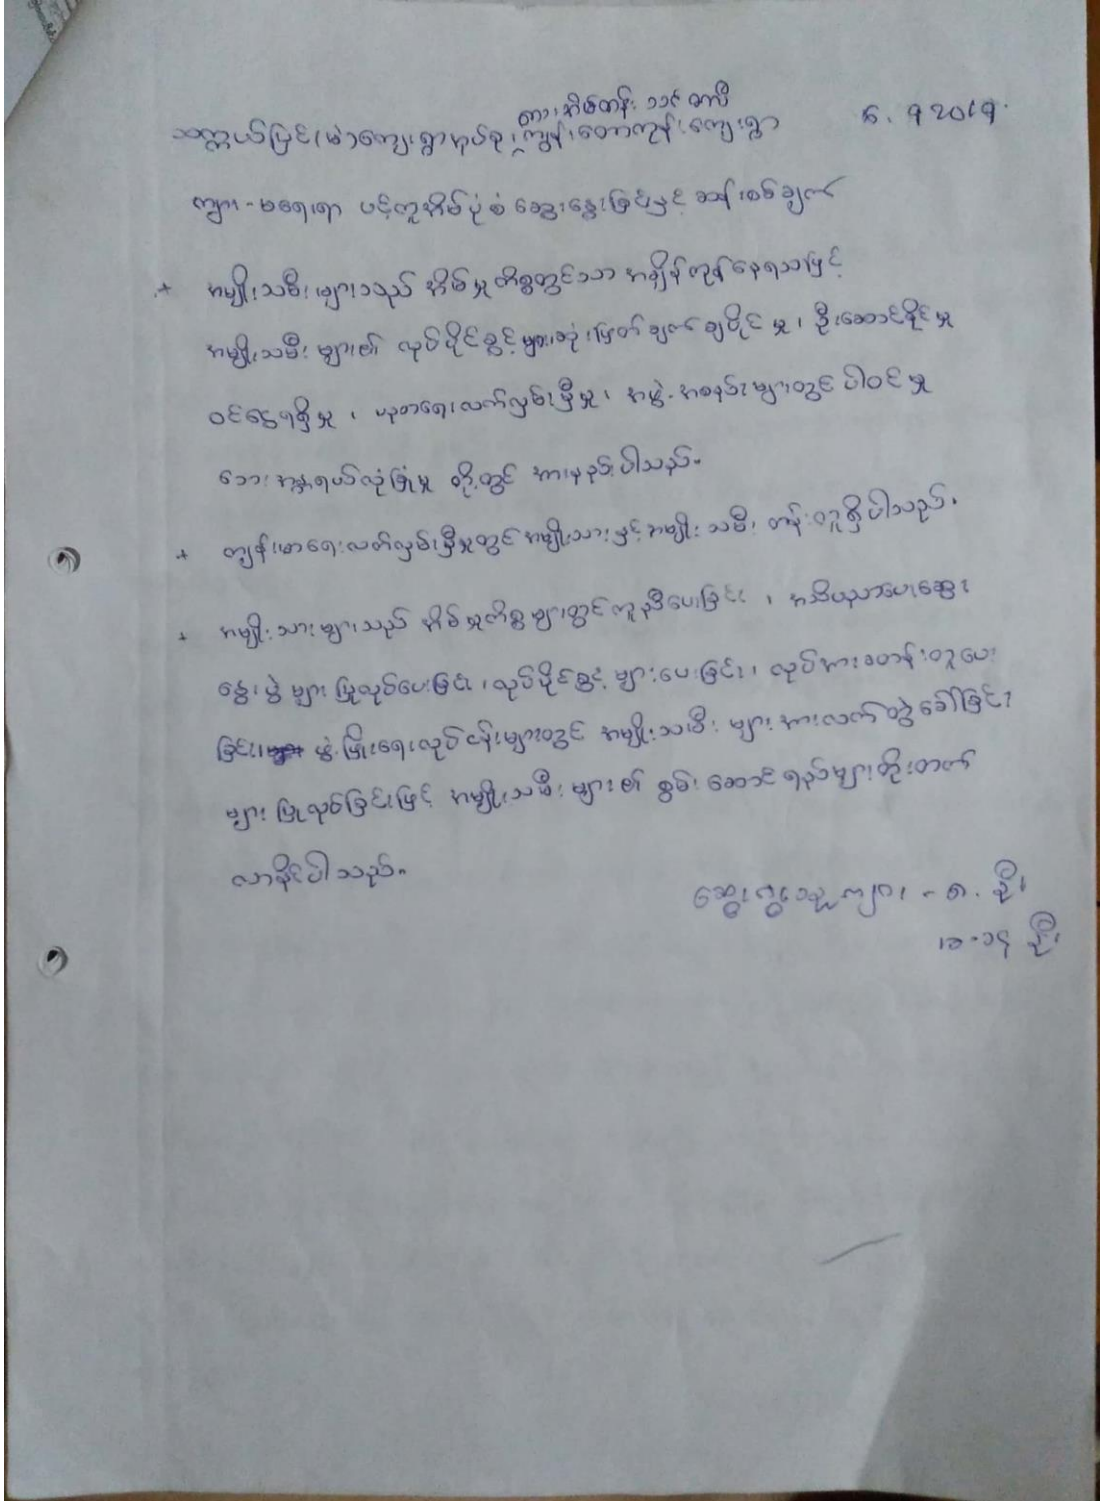 တာ၊ အိမ်တန်း ၁၁၉
သက္ကယ်ပြင်(မဲ)ကျေးရွာအုပ်စု၊ ကျွန်းတောကုန်းကျေးရွာ 6. 9 2019.
ကျား-မရေးရာ ပင့်ကူအိမ်ပုံစံ ဆွေးနွေးခြင်းနှင့် ဆန်းစစ်ချက်
+ အမျိုးသမီးများသည် အိမ်မှုကိစ္စတွင်သာ အချိန်ကုန်နေရသဖြင့်
အမျိုးသမီးများ၏ လုပ်ပိုင်ခွင့်များ၊ ဆုံးဖြတ်ချက်ချပိုင်မှု၊ ဦးဆောင်နိုင်မှု
ဝင်ငွေရရှိမှု၊ ပညာရေးလက်လှမ်းမှီမှု၊ အဖွဲ့အစည်းများတွင် ပါဝင်မှု
ဘေးအန္တရယ်လုံခြုံမှု တို့တွင် အားနည်းပါသည်။
+ ကျန်းမာရေးလက်လှမ်းမှီမှုတွင် အမျိုးသားနှင့်အမျိုးသမီး တန်းတူရှိပါသည်။
+ အမျိုးသားများသည် အိမ်မှုကိစ္စများတွင် ကူညီပေးခြင်း၊ အသိပညာပေးဆွေး
နွေးပွဲများ ပြုလုပ်ပေးခြင်း၊ လုပ်ပိုင်ခွင့်များပေးခြင်း၊ လုပ်အားခတန်းတူပေး
ခြင်း၊ ဖွံ့ဖြိုးရေးလုပ်ငန်းများတွင် အမျိုးသမီးများအားလက်တွဲခေါ်ခြင်း
များ ပြုလုပ်ခြင်းဖြင့် အမျိုးသမီးများ၏ စွမ်းဆောင်ရည်များတိုးတက်
လာနိုင်ပါသည်။
ဆွေးနွေးသူ ကျား - ၈ ဦး
မ - ၁၄ ဦး